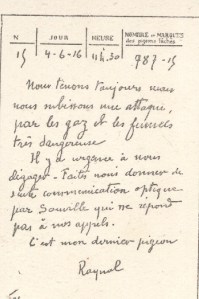 N JOUR HEURE NOMBRE et MARQUES
des pigeons lâchés
15 4-6-16 11h.30 787-15
Nous tenons toujours mais
nous subissons une attaque,
par les gaz et les fumées
très dangereuse
Il y a urgence à nous
dégager - Faites nous donner de
suite communication optique
par Souville qui ne répond
pas à nos appels.
C'est mon dernier pigeon
Raynal